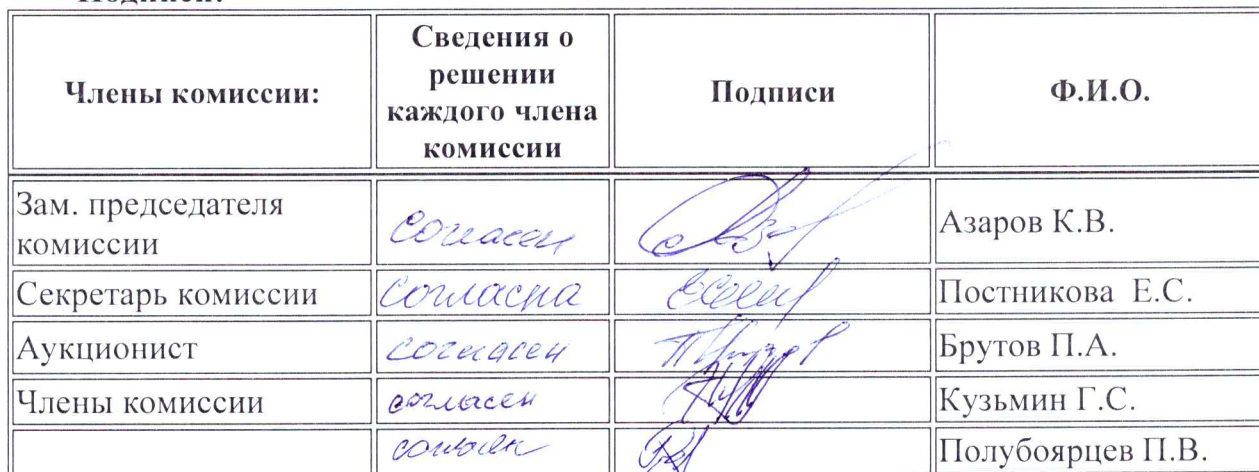 Подписи:
Члены комиссии: Сведения о решении каждого члена комиссии Подписи Ф.И.О.
Зам. председателя комиссии согласен Азаров К.В.
Секретарь комиссии согласна Постникова Е.С.
Аукционист согласен Брутов П.А.
Члены комиссии согласен Кузьмин Г.С.
согласен Полубоярцев П.В.